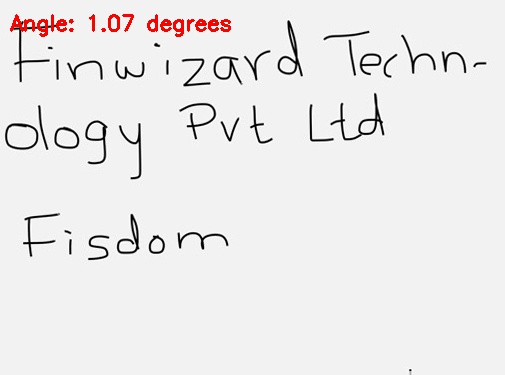 Angle: 1.07 degrees
Finwizard Techn-
ology Pvt Ltd
Fisdom